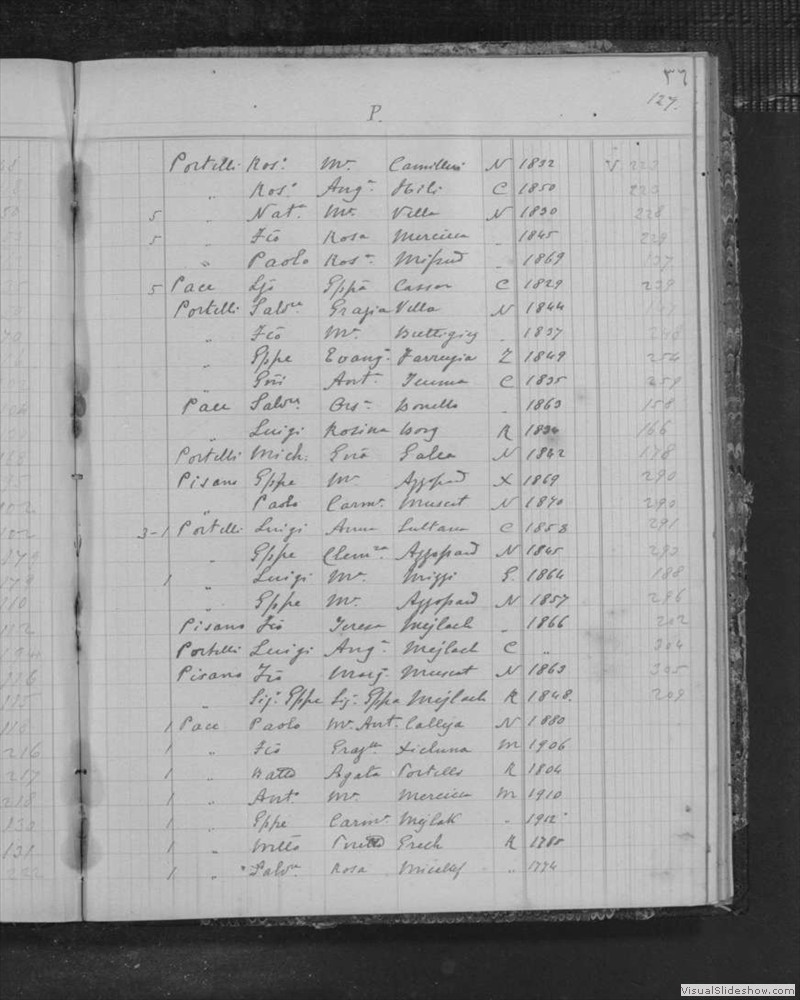 ٣٦
127.
P.
Portelli Ros. Mr. Camilleri N 1832 V. 223
" Ros. Aug. Hili C 1850 223
5 " Nat. Mr. Vella N 1830 228
5 " Fco Rosa Mercieca " 1845 229
" Paolo Ros. Mifsud " 1869 137
5 Pace Gjo Eppa Cassar C 1829 239
Portelli Salvre Grazia Vella N 1844 147
" Fco Mr. Buttigieg " 1837 248
" Gppe Evang. Farrugia Z 1849 254
" Gnni Ant. Teuma C 1835 259
Pace Salvre Ors. Bonello " 1863 158
" Luigi Rosina Borg R 1834 166
Portelli Mich. Galea N 1842 178
Pisano Gppe Mr. Azzopard X 1869 290
" Paolo Carm. Muscat N 1870 290
3-1 Portelli Luigi Anna Sultana C 1858 291
" Gppe Clemza Azzopard N 1845 293
1 " Luigi Mr. Mizzi G. 1864 188
" Gppe Mr. Azzopard N 1857 296
Pisano Fco Teresa Mejlach " 1866 202
Portelli Luigi Ang. Mejlach C " 304
Pisano Fco Marg. Muscat N 1863 305
" Sig. Gppe Sig. Gppa Mejlach R 1848. 209
1 Pace Paolo Mr. Ant. Calleja N 1880
1 " Fco Grazlla Xicluna M 1906
1 " Agata Portelli R 1804
1 " Ant. Mr. Mercieca M 1910
1 " Gppe Carm. Mejlak " 1912
1 " Grech R 1785
1 " Salvre Rosa Micallef " 1774
VisualSlideshow.com